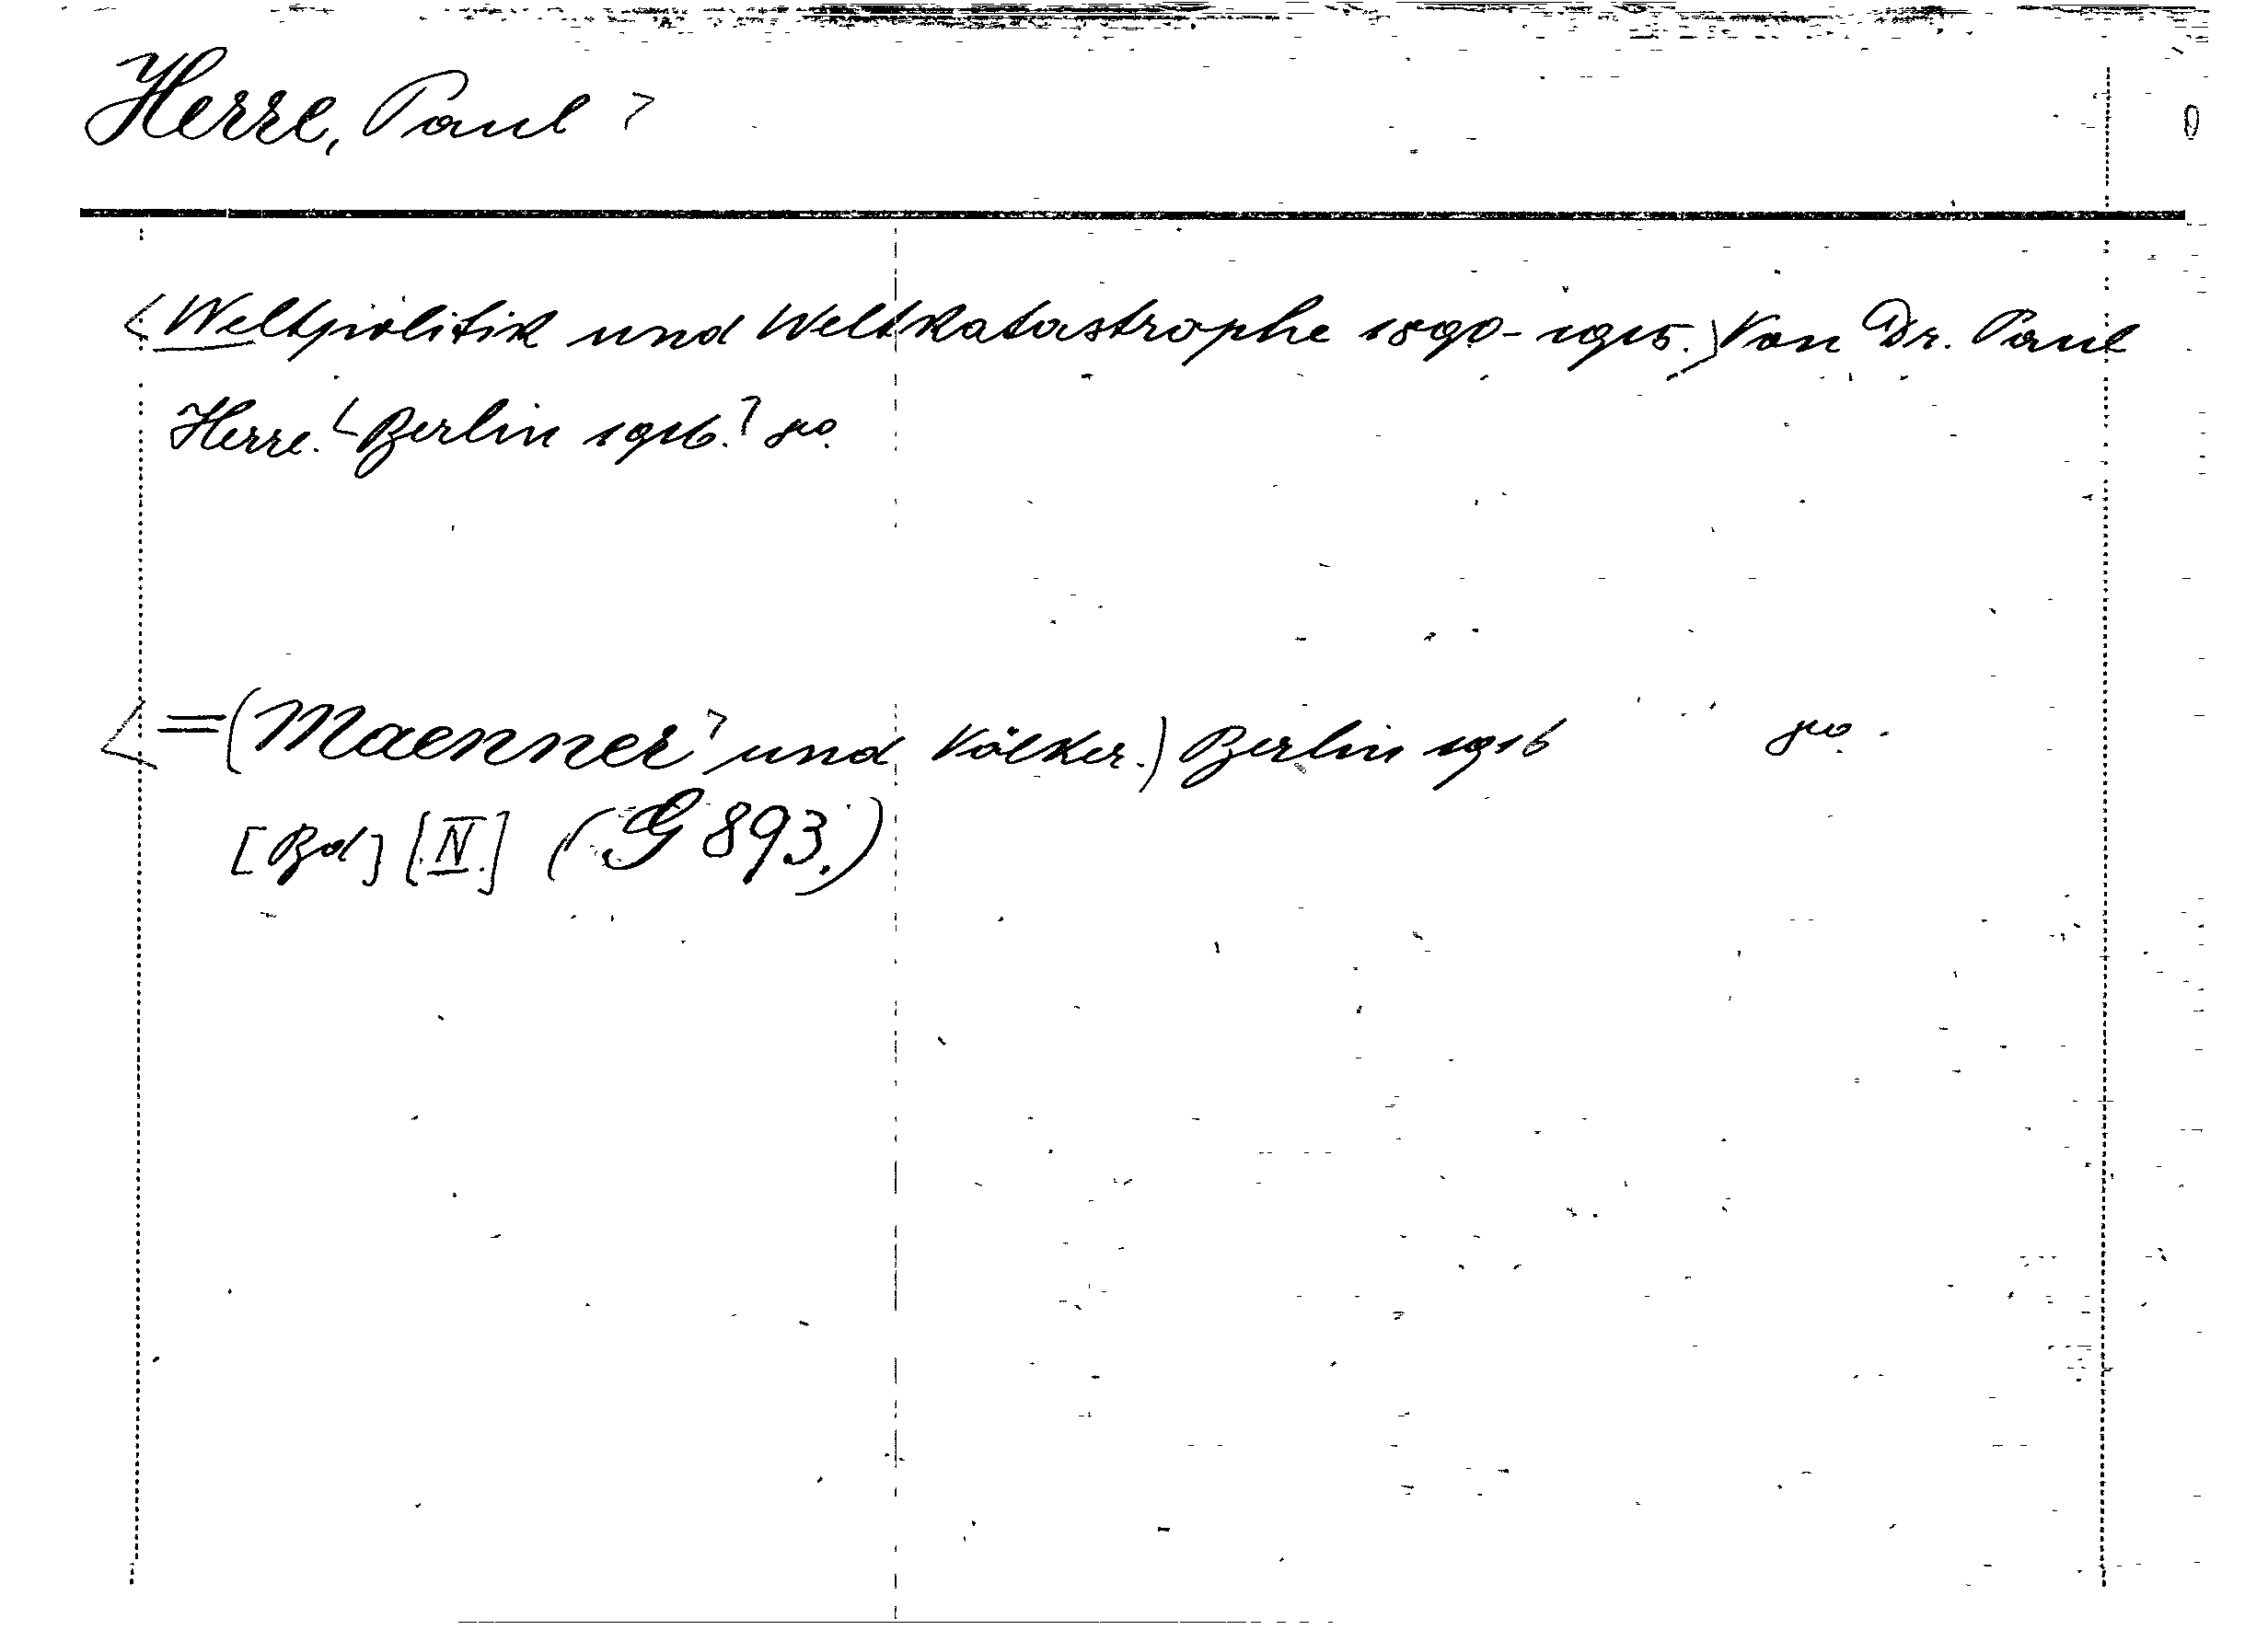 Herre, Paul
Weltpolitik und Weltkatastrophe 1890-1915.) Von Dr. Paul
Herre. Berlin 1916. 8°.
=(Maenner und Völker.) Berlin 1916 8°.
[Bd] [IV.] (G 893.)